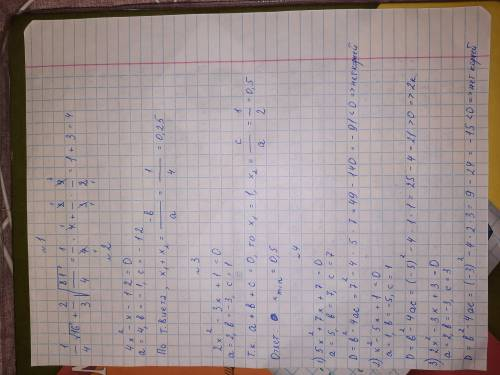 №1
1/4 √16 + 2/3 √(81/4) = 1/4 · 4 + 2/3 · 9/2 = 1 + 3 = 4
№2
4x² - x - 12 = 0
a = 4, b = -1, c = -12
По т. Виета, x₁ + x₂ = -b/a = 1/4 = 0,25
№3
2x² - 3x + 1 = 0
a = 2, b = -3, c = 1
Т.к. a + b + c = 0, то x₁ = 1, x₂ = c/a = 1/2 = 0,5
Ответ x min = 0,5
№4
1) 5x² + 7x + 7 = 0
a = 5, b = 7, c = 7
D = b² - 4ac = 7² - 4 · 5 · 7 = 49 - 140 = -91 < 0 => нет корней
2) x² - 5x + 1 = 0
a = 1, b = -5, c = 1
D = b² - 4ac = (-5)² - 4 · 1 · 1 = 25 - 4 = 21 > 0 => 2 к
3) 2x² - 3x + 3 = 0
a = 2, b = -3, c = 3
D = b² - 4ac = (-3)² - 4 · 2 · 3 = 9 - 24 = -15 < 0 => нет корней